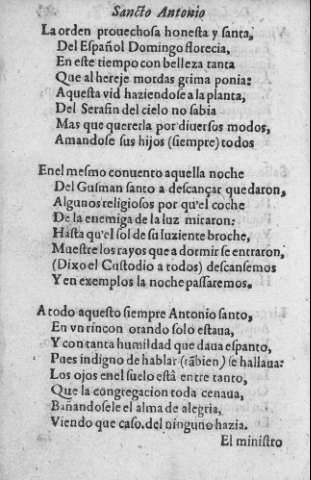 Sancto Antonio
La orden prouechosa honesta y santa,
Del Español Domingo florecia,
En este tiempo con belleza tanta
Que al hereje mordas grima ponia:
Aquesta vid haziendose a la planta,
Del Serafin del cielo no sabia
Mas que quererla por diuersos modos,
Amandose sus hijos (siempre) todos
Enel mesmo conuento aquella noche
Del Gusman santo a descançar quedaron,
Algunos religiosos por qu'el coche
De la enemiga de la luz miraron:
Hasta qu'el sol de su luziente broche,
Muestre los rayos que a dormir se entraron,
(Dixo el Custodio a todos) descansemos
Y en exemplos la noche passaremos.
A todo aquesto siempre Antonio santo,
En vn rincon orando solo estaua,
Y con tanta humildad que daua espanto,
Pues indigno de hablar (tãbien) se hallaua:
Los ojos enel suelo està entre tanto,
Que la congregacion toda cenaua,
Bañandosele el alma de alegria,
Viendo que caso del ninguno hazia.
El ministro